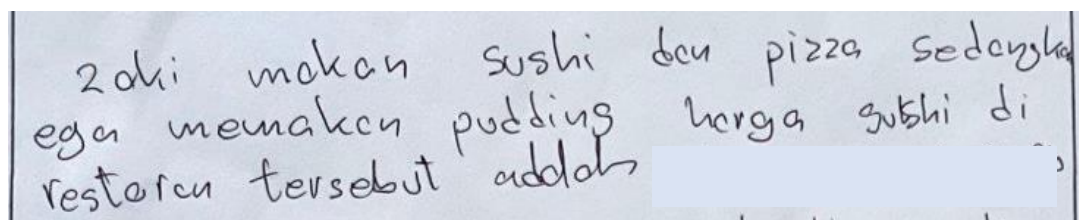 zaki makan sushi dan pizza sedangka
ega memakan pudding harga sushi di
restoran tersebut adalah